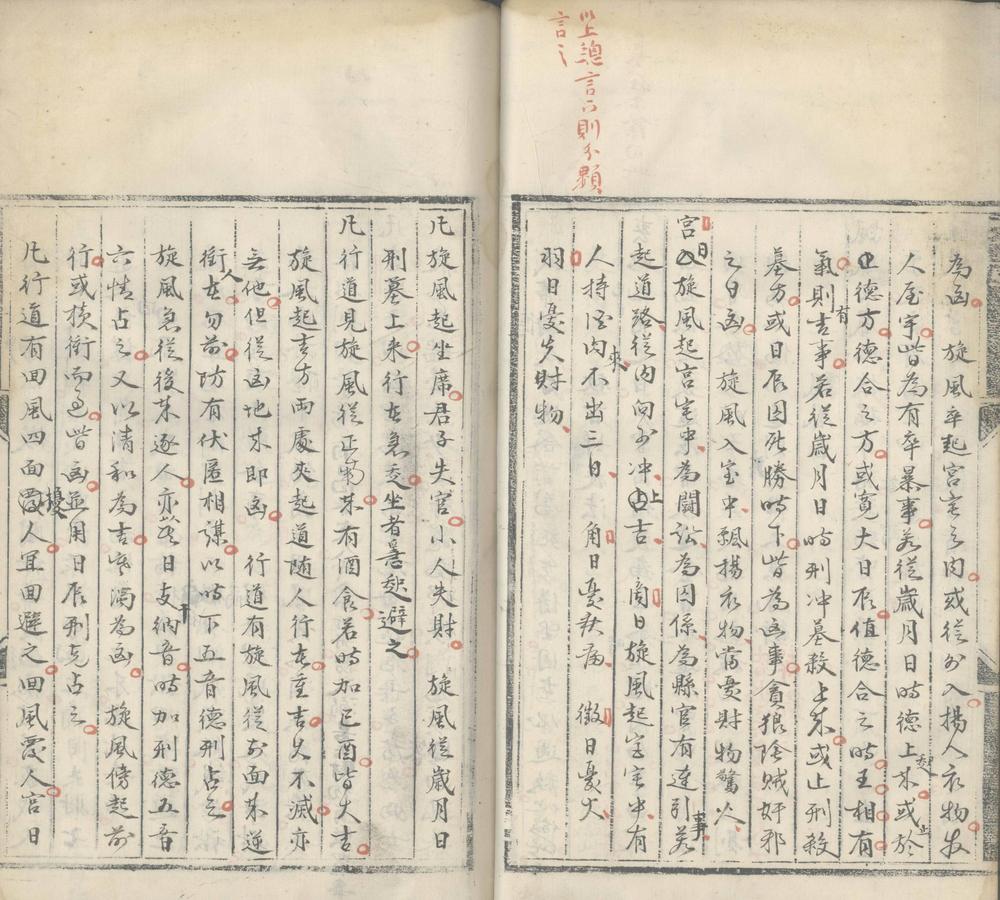 以上總言以下則分類
言之
為凶旋風卒起宮宅之內或從外入揚人衣物
人屋宇皆為有卒暴事若從歲月日時德上來或於
德方德合之方或寬大日辰值德合之時王相有
氣則吉有事若從歲月日時刑冲墓殺上來或止刑殺
墓方或日辰囚死勝時下皆為凶事貪狼陰賊奸邪
之日凶旋風入室中飄揚衣物當憂財物驚人
宮日旋風起宮宅中為闘訟為囚係為縣官有連引若事
起道路從內向外冲上吉商日旋風起宮宅中有
人持酒肉來不出三日角日憂疾病徵日憂火
羽日憂失財物
凡旋風起坐席君子失官小人失財旋風從歲月日
刑墓上來行在急交坐者善趍避之
凡行道見旋風從正南來有酒食若時加巳酉皆大吉
旋風起吉方兩處夾起道隨人行在重吉久不滅亦
無他但從凶地來即凶行道有旋風從前面來逆
衝人在勿前防有伏匿相謀以時下五音德刑占之
旋風急從後來逐人亦然日支干納音時加刑德五音
六情占之又以清和為吉寒濁為凶旋風傍起前
行或橫衝而過皆凶並用日辰刑克占之
凡行道有回風四面擾人宜回避之回風處人宮日